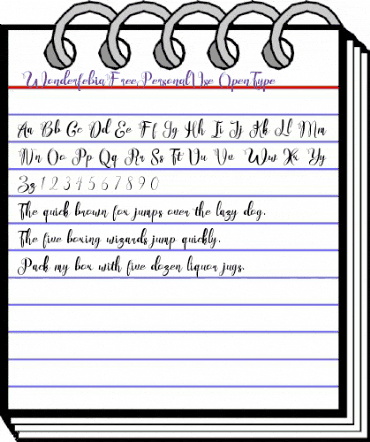 WonderfebiaFree,PersonalUse OpenType
Aa Bb Cc Dd Ee Ff Gg Hh Ii Jj Kk Ll Mm
Nn Oo Pp Qq Rr Ss Tt Uu Vv Ww Xx Yy
Zz 1 2 3 4 5 6 7 8 9 0
The quick brown fox jumps over the lazy dog.
The five boxing wizards jump quickly.
Pack my box with five dozen liquor jugs.